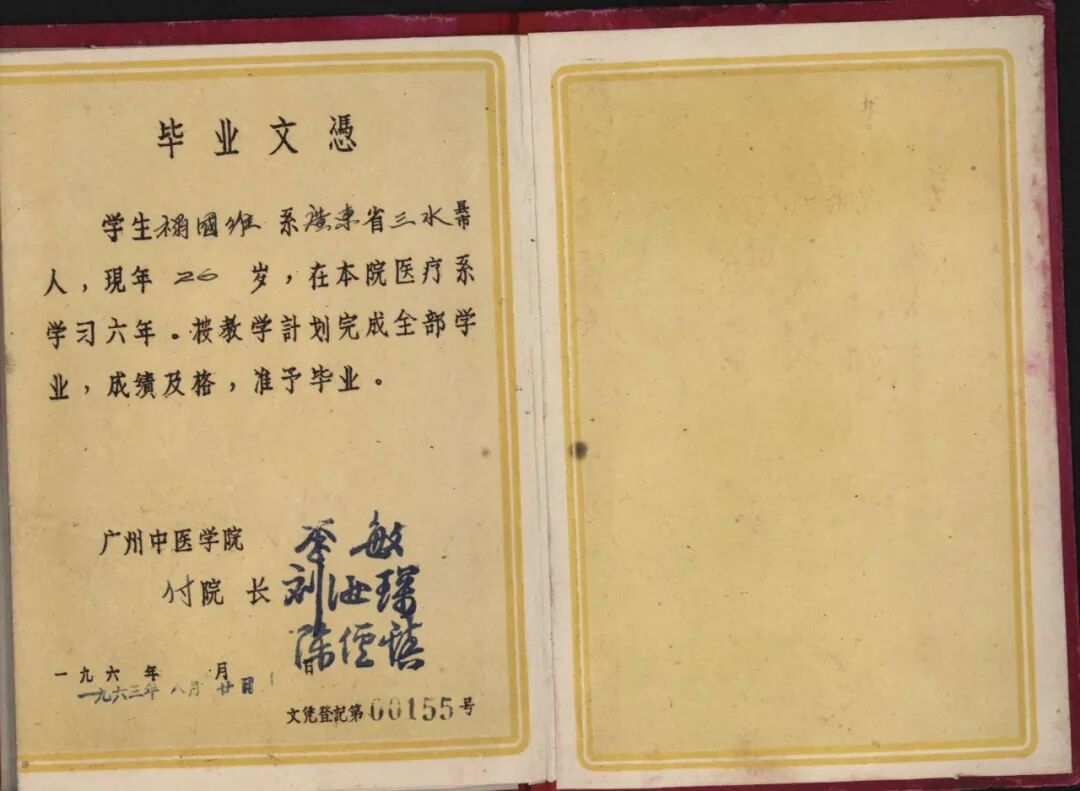 毕业文憑
学生禤國维 系廣东省三水县市
人，現年 26 岁，在本院医疗系
学习六年。按教学計划完成全部学
业，成績及格，准予毕业。
广州中医学院
付院 长
李敏
刘汝琛
陈
一九六 年 月 日
一九六三年八月廿日
文凭登記第00155号